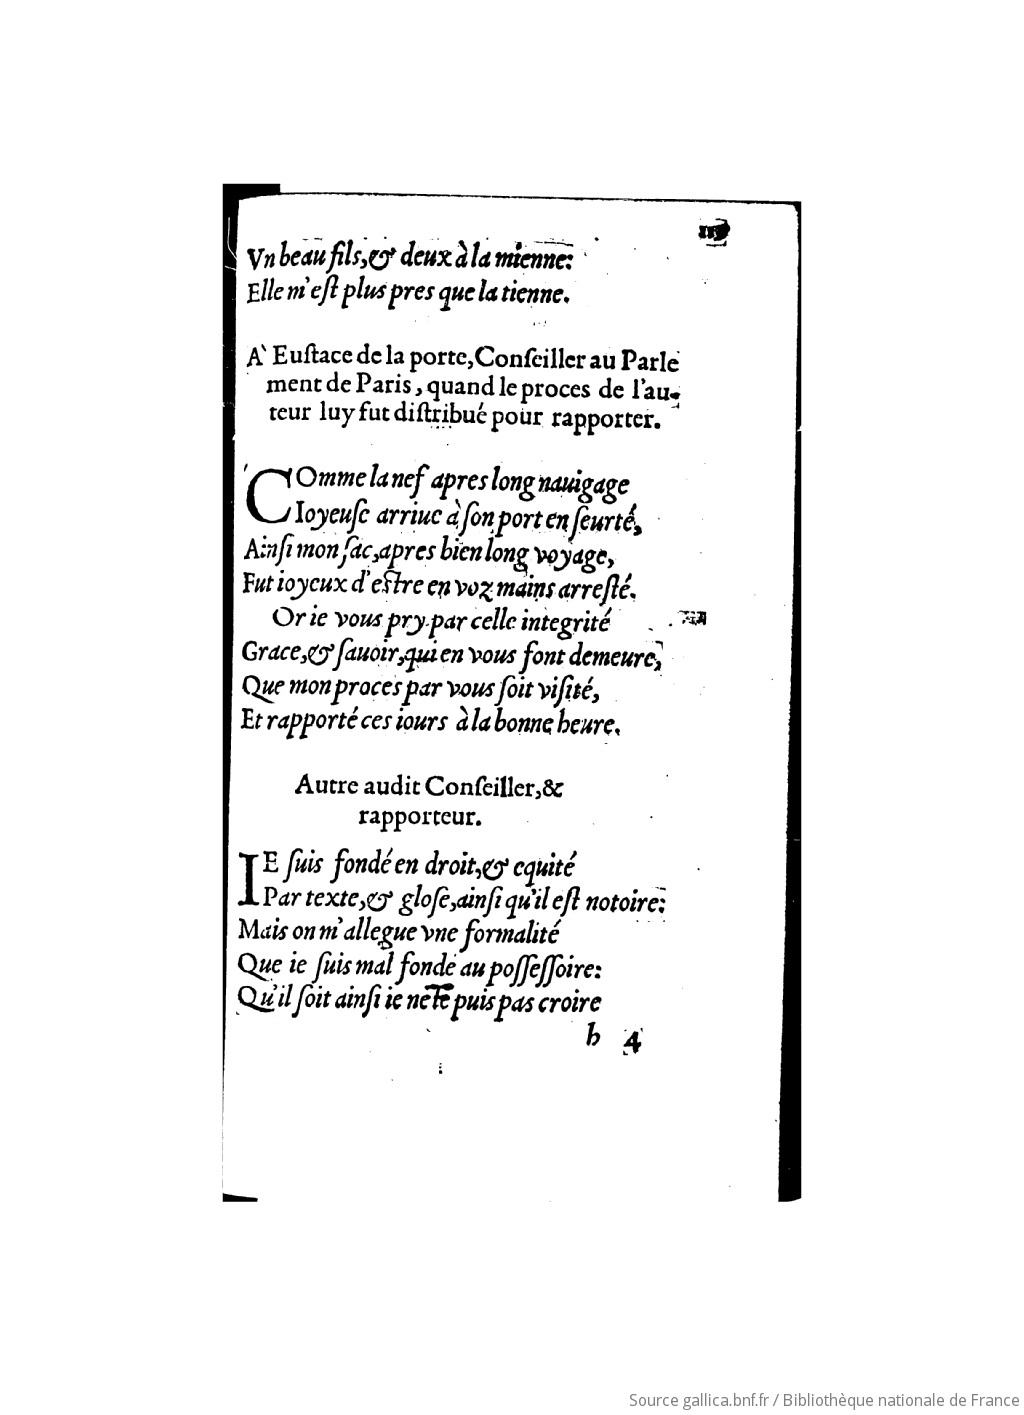 Vn beau fils, & deux à la mienne:
Elle m'eſt plus pres que la tienne.
A` Euſtace de la porte, Conſeiller au Parle
ment de Paris, quand le proces de l'au-
teur luy fut diſtribué pour rapporter.
COmme la nef apres long nauigage
Ioyeuſe arriue à ſon port en ſeurté,
Ainſi mon ſac, apres bien long voyage,
Fut ioyeux d'eſtre en voz mains arreſté.
Or ie vous pry par celle integrité
Grace, & ſauoir, qui en vous font demeure,
Que mon proces par vous ſoit viſité,
Et rapporté ces iours à la bonne heure.
Autre audit Conſeiller, &
rapporteur.
IE ſuis fondé en droit, & equité
Par texte, & gloſe, ainſi qu'il eſt notoire:
Mais on m'allegue vne formalité
Que ie ſuis mal fondé au poſſeſſoire:
Qu'il ſoit ainſi ie ne le puis pas croire
h 4
Source gallica.bnf.fr / Bibliothèque nationale de France